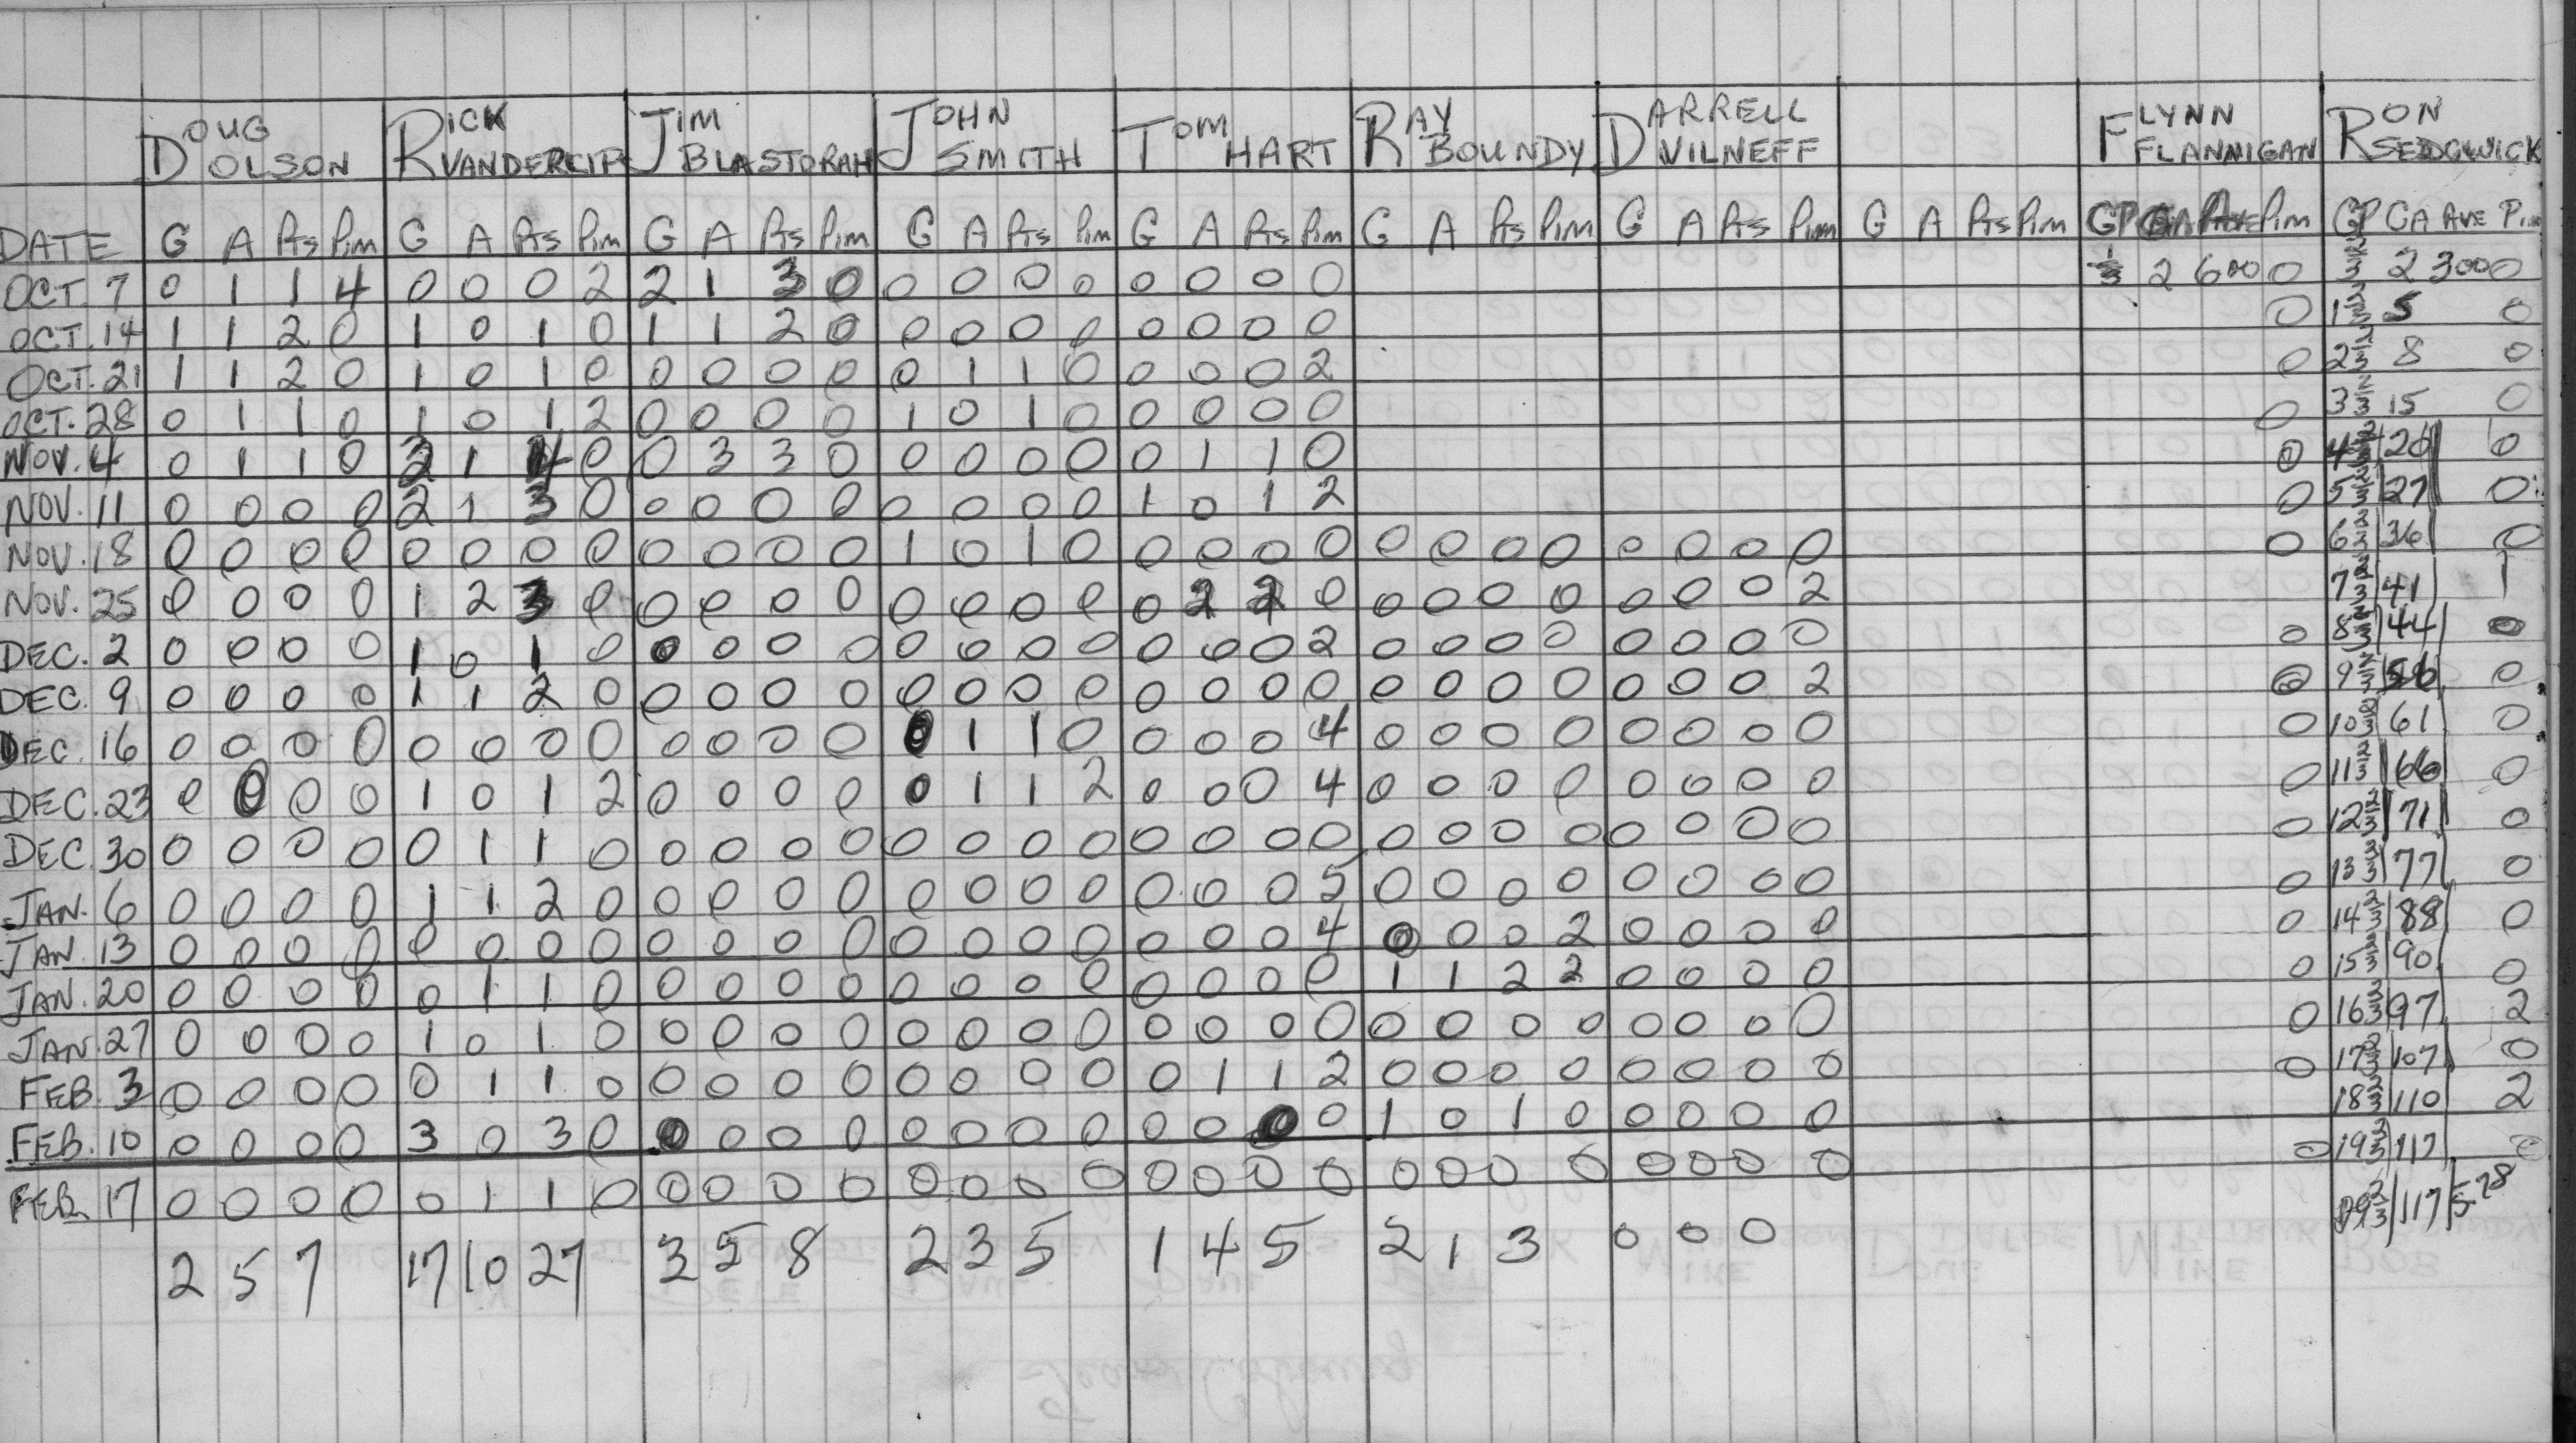 DOUG OLSON RICK VANDERCLIP JIM BLASTORAH JOHN SMITH TOM HART RAY BOUNDY DARRELL VILNEFF FLYNN FLANNIGAN RON SEDGWICK
DATE G A Pts Pim G A Pts Pim G A Pts Pim G A Pts Pim G A Pts Pim G A Pts Pim G A Pts Pim G A Pts Pim GP GA Ave Pim GP GA AVE Pim
OCT. 7 0 1 1 4 0 0 0 2 2 1 3 0 0 0 0 0 0 0 0 0 1/3 2 6 00 0 2/3 2 3 00 0
OCT. 14 1 1 2 0 1 0 1 0 1 1 2 0 0 0 0 0 0 0 0 0 0 1 2/3 5 0
OCT. 21 1 1 2 0 1 0 1 0 0 0 0 0 0 1 1 0 0 0 0 2 0 2 2/3 8 0
OCT. 28 0 1 1 0 1 0 1 2 0 0 0 0 1 0 1 0 0 0 0 0 0 3 2/3 15 0
NOV. 4 0 1 1 0 3 1 4 0 0 3 3 0 0 0 0 0 0 1 1 0 0 4 2/3 20 0
NOV. 11 0 0 0 0 2 1 3 0 0 0 0 0 0 0 0 0 1 0 1 2 0 5 2/3 27 0
NOV. 18 0 0 0 0 0 0 0 0 0 0 0 0 1 0 1 0 0 0 0 0 0 0 0 0 0 0 0 0 0 6 2/3 36 0
NOV. 25 0 0 0 0 1 2 3 0 0 0 0 0 0 0 0 0 0 2 2 0 0 0 0 0 0 0 0 2 7 2/3 41 1
DEC. 2 0 0 0 0 1 0 1 0 0 0 0 0 0 0 0 0 0 0 0 2 0 0 0 0 0 0 0 0 0 8 2/3 44 0
DEC. 9 0 0 0 0 1 1 2 0 0 0 0 0 0 0 0 0 0 0 0 0 0 0 0 0 0 0 0 2 0 9 2/3 56 0
DEC. 16 0 0 0 0 0 0 0 0 0 0 0 0 0 1 1 0 0 0 0 4 0 0 0 0 0 0 0 0 0 10 2/3 61 0
DEC. 23 0 0 0 0 1 0 1 2 0 0 0 0 0 1 1 2 0 0 0 4 0 0 0 0 0 0 0 0 0 11 2/3 66 0
DEC. 30 0 0 0 0 0 1 1 0 0 0 0 0 0 0 0 0 0 0 0 0 0 0 0 0 0 0 0 0 0 12 2/3 71 0
JAN. 6 0 0 0 0 1 1 2 0 0 0 0 0 0 0 0 0 0 0 0 5 0 0 0 0 0 0 0 0 0 13 2/3 77 0
JAN. 13 0 0 0 0 0 0 0 0 0 0 0 0 0 0 0 0 0 0 0 4 0 0 0 2 0 0 0 0 0 14 2/3 88 0
JAN. 20 0 0 0 0 0 1 1 0 0 0 0 0 0 0 0 0 0 0 0 0 1 1 2 2 0 0 0 0 0 15 2/3 90 0
JAN. 27 0 0 0 0 1 0 1 0 0 0 0 0 0 0 0 0 0 0 0 0 0 0 0 0 0 0 0 0 0 16 2/3 97 2
FEB. 3 0 0 0 0 0 1 1 0 0 0 0 0 0 0 0 0 0 1 1 2 0 0 0 0 0 0 0 0 0 17 2/3 107 0
FEB. 10 0 0 0 0 3 0 3 0 0 0 0 0 0 0 0 0 0 0 0 0 1 0 1 0 0 0 0 0 18 2/3 110 2
FEB. 17 0 0 0 0 0 1 1 0 0 0 0 0 0 0 0 0 0 0 0 0 0 0 0 0 0 0 0 0 0 19 2/3 117 0
2 5 7 17 10 27 3 5 8 2 3 5 1 4 5 2 1 3 0 0 0 19 2/3 117 5.78